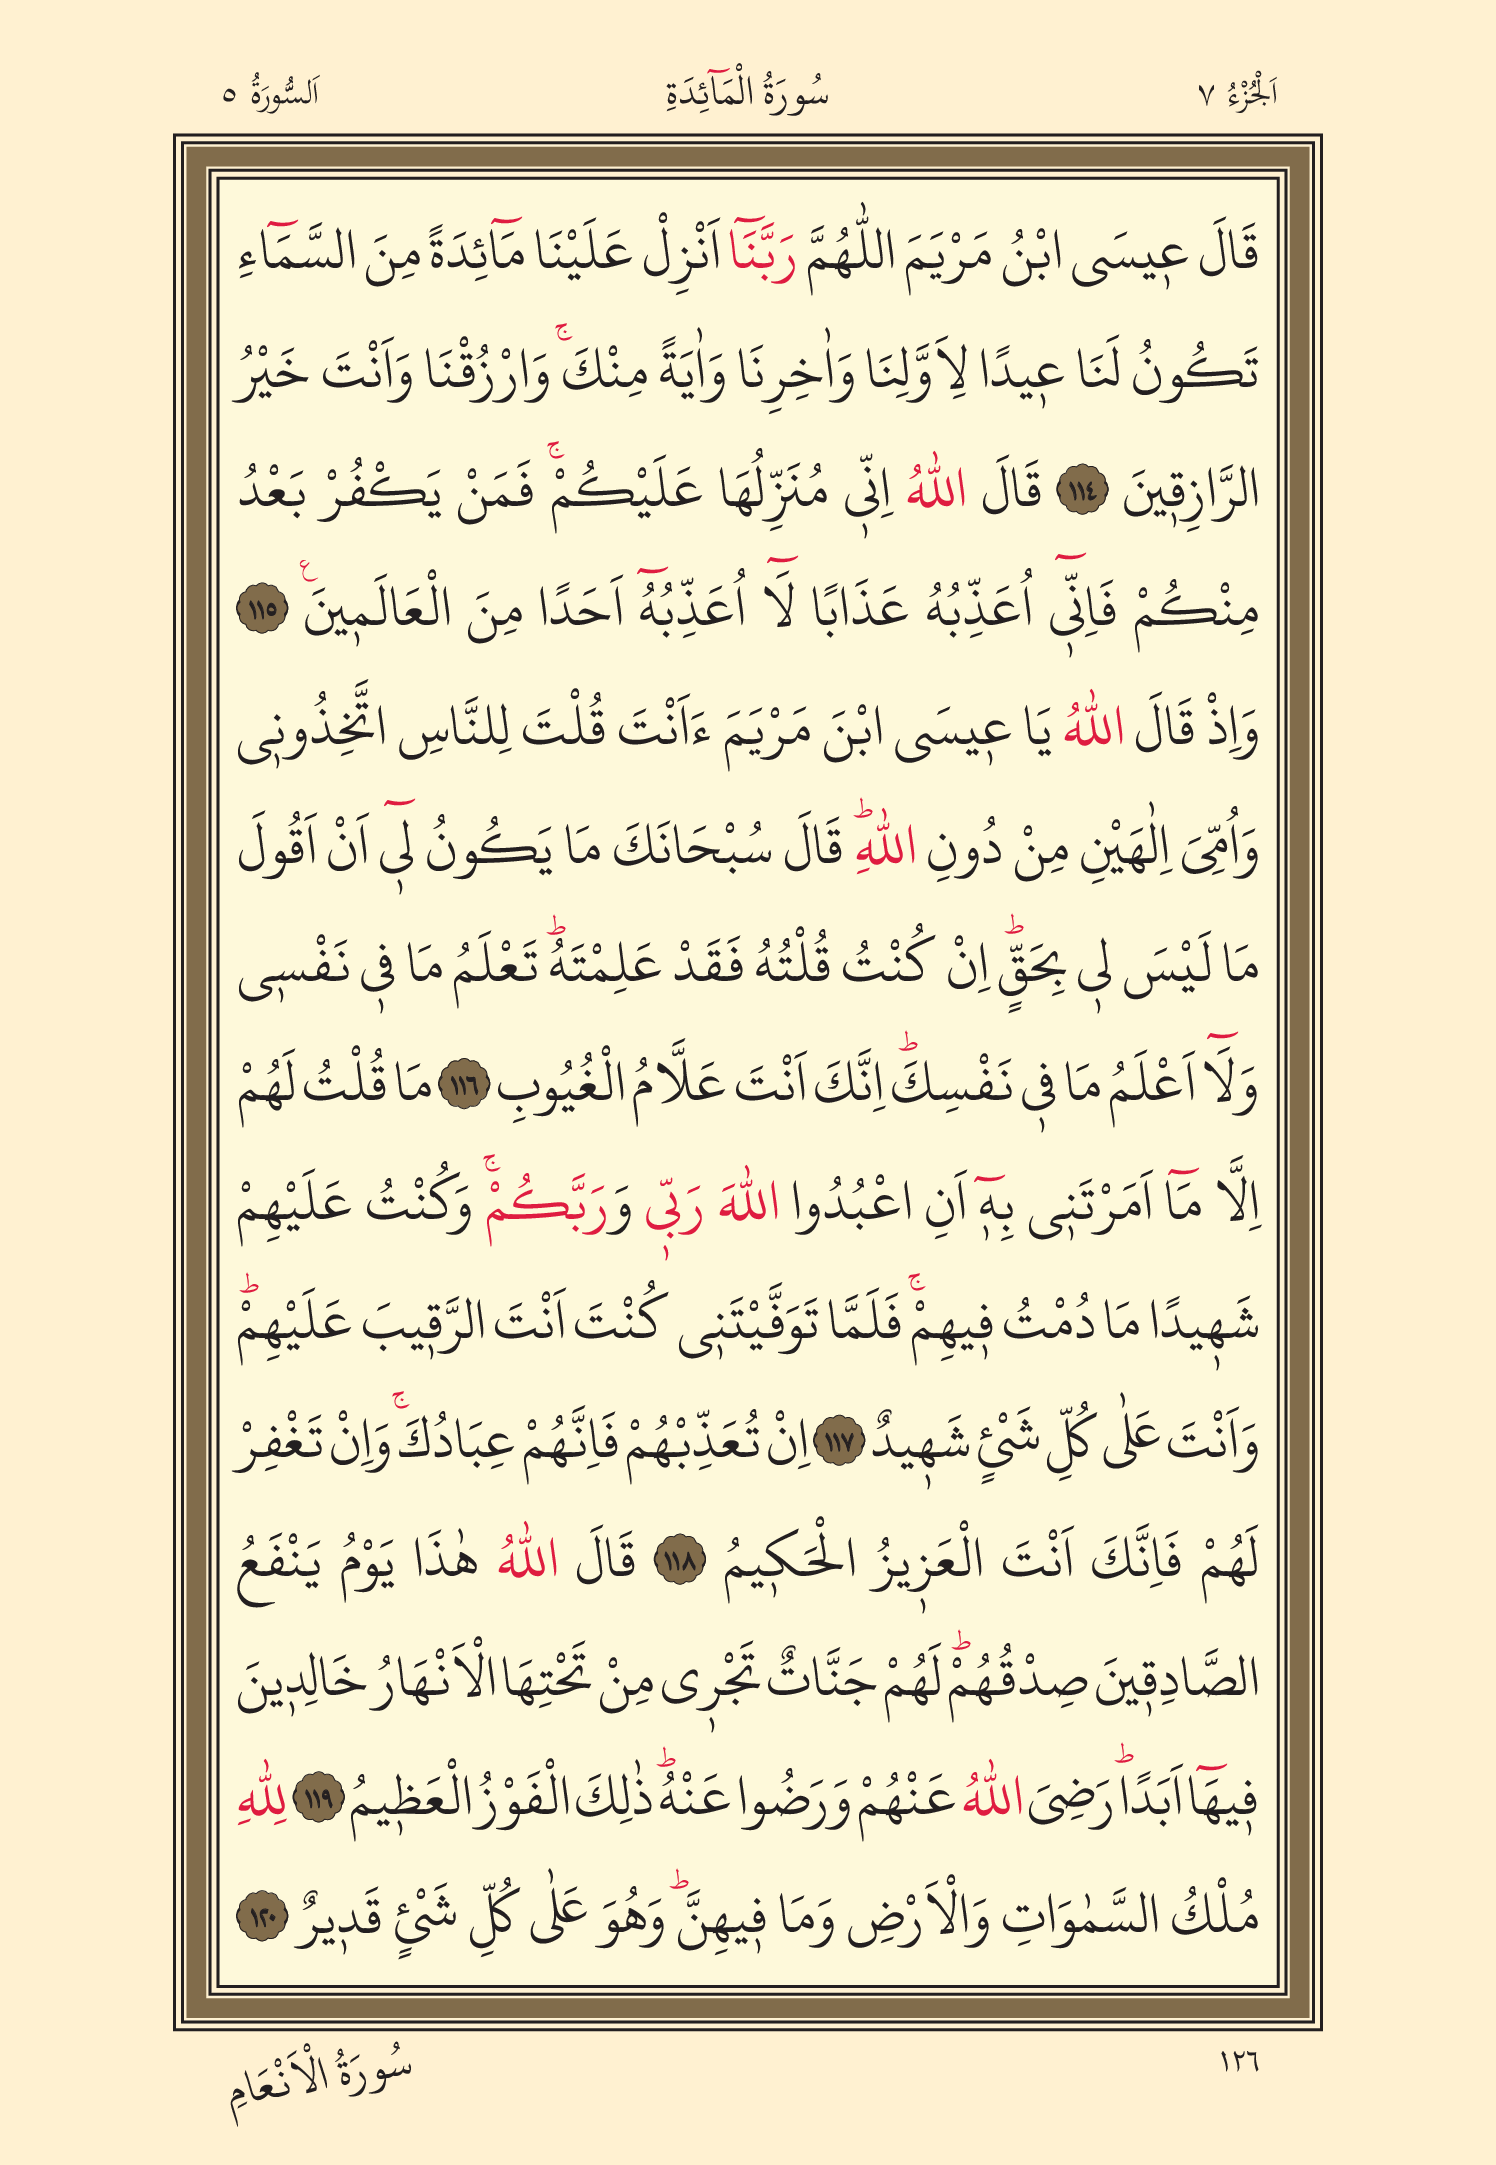 اَلْجُزْءُ ٧
سُورَةُ الْمَٓائِدَةِ
اَلسُّورَةُ ٥
قَالَ عٖيسَى ابْنُ مَرْيَمَ اللّٰهُمَّ رَبَّنَٓا اَنْزِلْ عَلَيْنَا مَٓائِدَةً مِنَ السَّمَٓاءِ
تَكُونُ لَنَا عٖيدًا لِاَوَّلِنَا وَاٰخِرِنَا وَاٰيَةً مِنْكَۚ وَارْزُقْنَا وَاَنْتَ خَيْرُ
الرَّازِقٖينَ ﴿١١٤﴾ قَالَ اللّٰهُ اِنّٖى مُنَزِّلُهَا عَلَيْكُمْۚ فَمَنْ يَكْفُرْ بَعْدُ
مِنْكُمْ فَاِنّٖٓى اُعَذِّبُهُ عَذَابًا لَٓا اُعَذِّبُهُٓ اَحَدًا مِنَ الْعَالَمٖينَ ع ﴿١١٥﴾
وَاِذْ قَالَ اللّٰهُ يَا عٖيسَى ابْنَ مَرْيَمَ ءَاَنْتَ قُلْتَ لِلنَّاسِ اتَّخِذُونٖى
وَاُمِّىَ اِلٰهَيْنِ مِنْ دُونِ اللّٰهِؕ قَالَ سُبْحَانَكَ مَا يَكُونُ لٖٓى اَنْ اَقُولَ
مَا لَيْسَ لٖى بِحَقٍّؕ اِنْ كُنْتُ قُلْتُهُ فَقَدْ عَلِمْتَهُؕ تَعْلَمُ مَا فٖى نَفْسٖى
وَلَٓا اَعْلَمُ مَا فٖى نَفْسِكَؕ اِنَّكَ اَنْتَ عَلَّامُ الْغُيُوبِ ﴿١١٦﴾ مَا قُلْتُ لَهُمْ
اِلَّا مَٓا اَمَرْتَنٖى بِهٖٓ اَنِ اعْبُدُوا اللّٰهَ رَبّٖى وَرَبَّكُمْۚ وَكُنْتُ عَلَيْهِمْ
شَهٖيدًا مَا دُمْتُ فٖيهِمْۚ فَلَمَّا تَوَفَّيْتَنٖى كُنْتَ اَنْتَ الرَّقٖيبَ عَلَيْهِمْؕ
وَاَنْتَ عَلٰى كُلِّ شَىْئٍ شَهٖيدٌ ﴿١١٧﴾ اِنْ تُعَذِّبْهُمْ فَاِنَّهُمْ عِبَادُكَۚ وَاِنْ تَغْفِرْ
لَهُمْ فَاِنَّكَ اَنْتَ الْعَزٖيزُ الْحَكٖيمُ ﴿١١٨﴾ قَالَ اللّٰهُ هٰذَا يَوْمُ يَنْفَعُ
الصَّادِقٖينَ صِدْقُهُمْؕ لَهُمْ جَنَّاتٌ تَجْرٖى مِنْ تَحْتِهَا الْاَنْهَارُ خَالِدٖينَ
فٖيهَٓا اَبَدًاؕ رَضِىَ اللّٰهُ عَنْهُمْ وَرَضُوا عَنْهُؕ ذٰلِكَ الْفَوْزُ الْعَظٖيمُ ﴿١١٩﴾ لِلّٰهِ
مُلْكُ السَّمٰوَاتِ وَالْاَرْضِ وَمَا فٖيهِنَّؕ وَهُوَ عَلٰى كُلِّ شَىْئٍ قَدٖيرٌ ﴿١٢٠﴾
١٢٦
سُورَةُ الْاَنْعَامِ